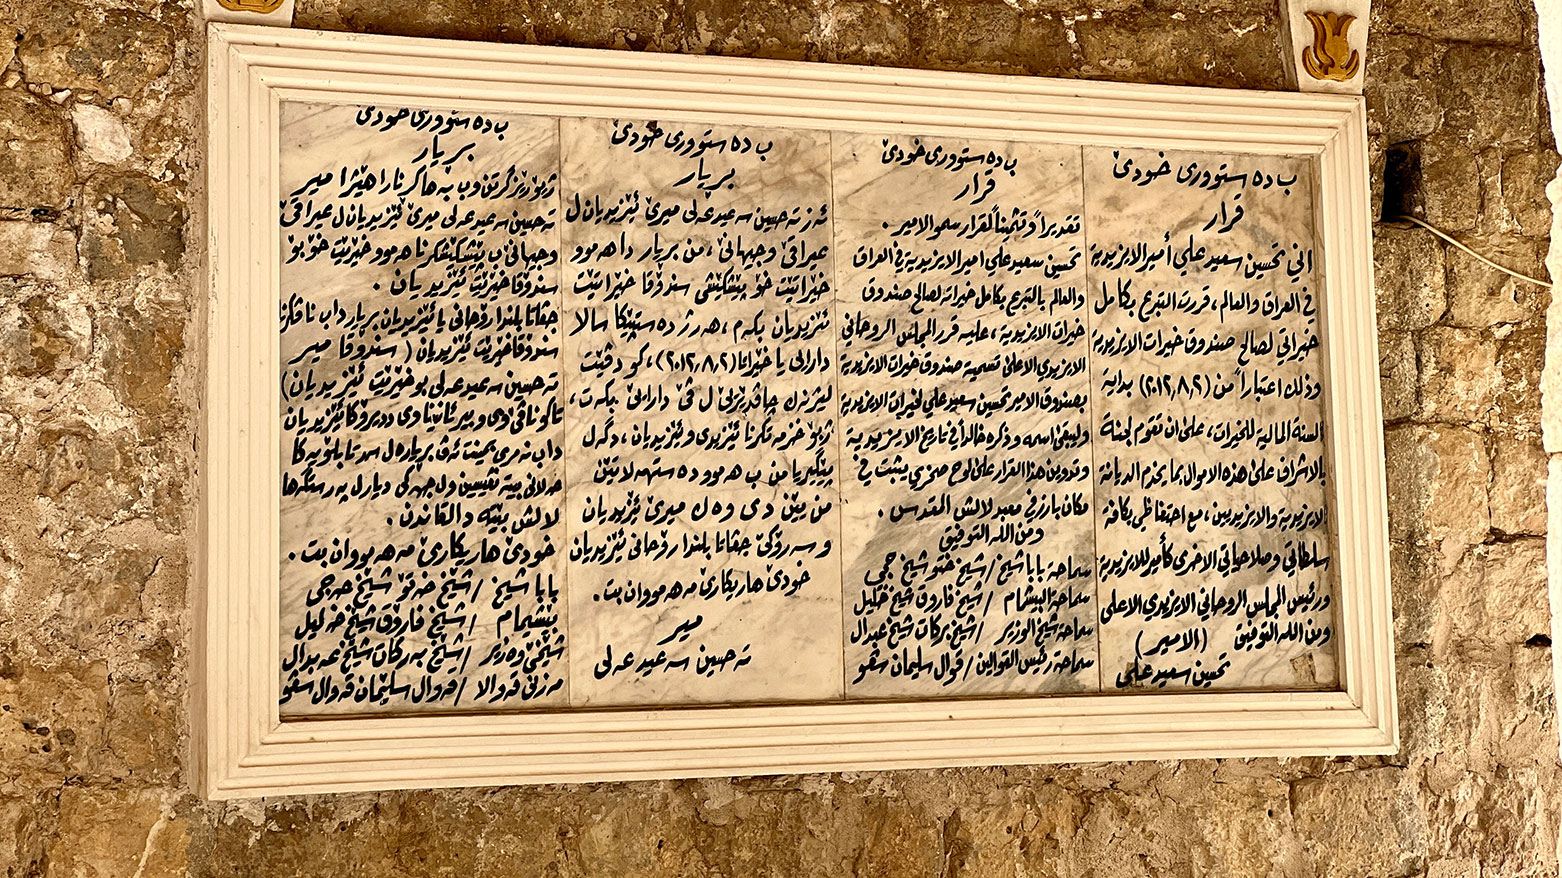 ب ده ستووری خودێ
قرار
اني تحسين سعيد علي أمير الايزيدية
في العراق والعالم ، قررت التبرع بكامل
خيراتي لصالح صندوق خيرات الايزيدية
وذلك اعتباراً من (٢٠١٢،٨،٢) بداية
السنة المالية للخيرات ، على ان تقوم لجنة
بالاشراف على هذه الاموال بما يخدم الديانة
الايزيدية والايزيديين ، مع احتفاظي بكافة
سلطاتي وصلاحياتي الاخرى كأمير للايزيدية
ورئيس المجلس الروحاني الايزيدي الاعلى
ومن الله التوفيق (الامير)
تحسين سعيد علي
ب ده ستووری خودێ
قرار
تقديراً وتثميناً لقرار سمو الامير .
تحسين سعيد علي امير الايزيدية في العراق
والعالم بالتبرع بكامل خيراته لصالح صندوق
خيرات الايزيدية ، عليه قرر المجلس الروحاني
الايزيدي الاعلى تسمية صندوق خيرات الايزيدية
بصندوق الامير تحسين سعيد علي لخيرات الايزيدية
وليبقى اسمه وذكره خالداً في تاريخ الايزيدية
وتدوين هذا القرار على لوح صخري يثبت في
مكان بارز في معبد لالش المقدس .
ومن الله التوفيق
سماحة بابا شيخ / شيخ ختو شيخ حجي
سماحة البيشمام / شيخ فاروق شيخ خليل
سماحة شيخ الوزير / شيخ بركات شيخ عبدال
سماحة رئيس القوالين / قوال سليمان سفو
ب ده ستووری خودێ
بریار
ئه ز ته حسین سه عید عه لی میرێ ئێزیدیان ل
عیراقێ و جیهانێ ، من بریار دا هه موو
خێراتێت خۆ پێشکێشی سندۆقا خێراتێت
ئێزیدیان بکه م ، هه ر ژ ده ستپێکا سالا
دارایی یا خێراتا (٢٠١٢،٨،٢) ، کو دڤێت
لیژنه ک چاڤدێریێ ل ڤی دارایێ بکه ت ،
ژبۆ خزمه تکرنا ئێزیدی و ئێزیدیان ، دگه ل
پێگیریا من ب هه موو ده ستهه لاتێن
من یێن دی وه ک میرێ ئێزیدیان
و سه رۆکێ جڤاتا بلندا رۆحانی ئێزیدیان
خودێ هاریکارێ مه هه مووان بت .
میر
ته حسین سه عید عه لی
ب ده ستووری خودێ
بریار
ژبۆ رێزگرتن و ب به هاکرنا راهێژا میر
ته حسین سه عید عه لی میرێ ئێزیدیان ل عیراقێ
و جیهانێ ب پێشکێشکرنا هه موو خێرێت خۆ بۆ
سندۆقا خێرێت ئێزیدیان .
جڤاتا بلندا رۆحانی یا ئێزیدیان بریار دا ب ناڤکرنا
سندۆقا خێرێت ئێزیدیان ( سندوقا میر
ته حسین سه عید عه لی بو خێرێت ئێزیدیان )
تاکو ناڤێ وی و بیرئانینا وی د دیرۆکا ئێزیدیان
دا ب نه مری بمینت ئه ڤ بریاره ل سه ر تابلۆیه کا
هه لانی بێته نڤیسین و ل جهه کێ دیار ل په رستگه ها
لالش بێته دالقاندن .
خودێ هاریکارێ مه هه مووان بت .
بابا شیخ / شێخ خه تو شیخ حه جی
پێشیمام / شێخ فاروق شیخ خه لیل
شێخێ وه زیر / شێخ به رکات شیخ عه بدال
مه زنێ قه والا / قه وال سلێمان قه وال سفو